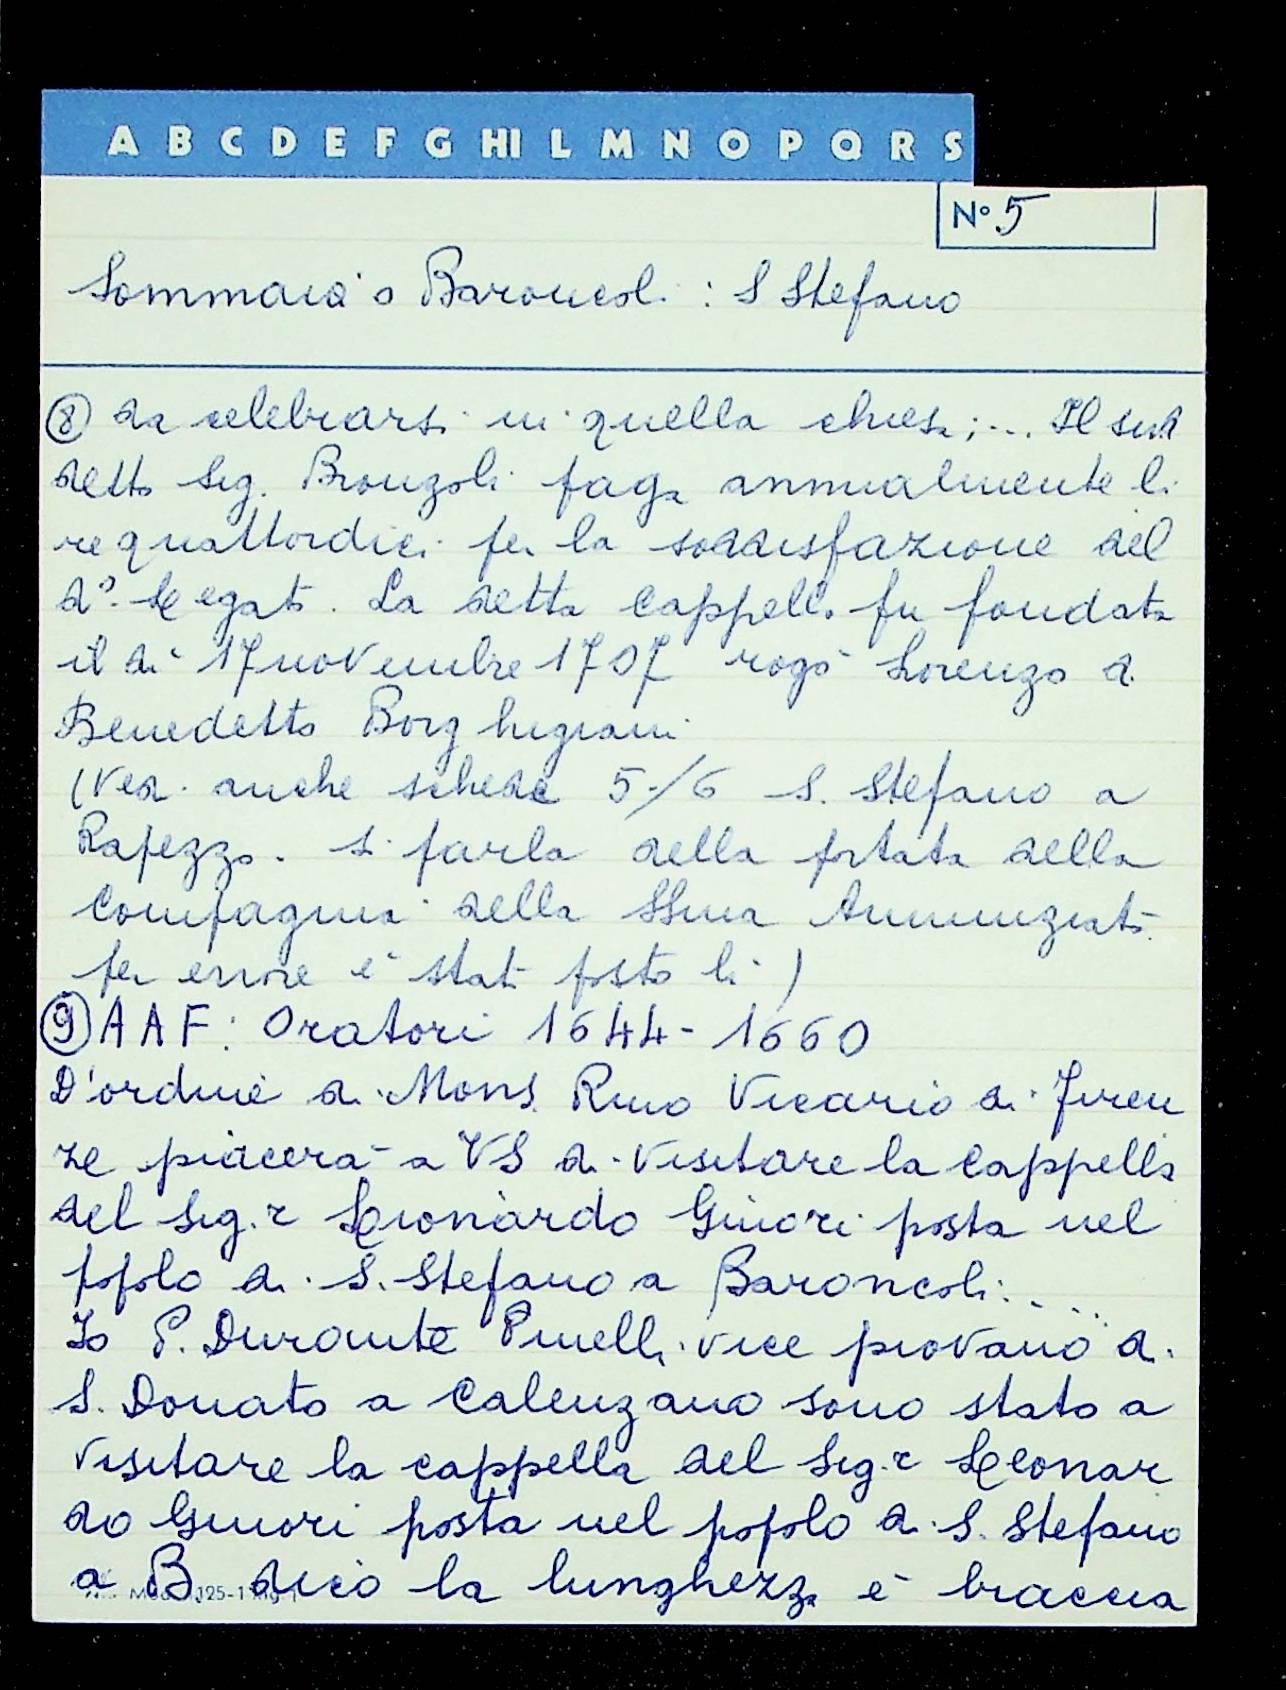 A B C D E F G HI L M N O P Q R S
N° 5
Sommaia o Baroncoli : S Stefano
⑧ da celebrarsi in quella chiesa;... Il sud
detto Sig. Bronzoli paga annualmente li
re quattordici per la soddisfazione del
d°. Legato. La detta Cappella fu fondata
il dì 17 novembre 1707 rogò Lorenzo di
Benedetto Borghigiani
(Ved. anche schede 5/6 S. Stefano a
Rapezzo. si parla della portata della
Compagnia della SSma Annunziata
per errore è stato posto lì)
⑨ AAF: Oratori 1644-1660
D'ordine di Mons. Rmo Vicario di Firen
ze piacerà a VS di visitare la Cappella
del Sig.r Leonardo Ginori posta nel
popolo di S. Stefano a Baroncoli:....
Io P. Durante Pinelli vice piovano di
S. Donato a Calenzano sono stato a
visitare la cappella del Sig.r Leonar
do Ginori posta nel popolo di S. Stefano
a B. dico la lunghezza è braccia